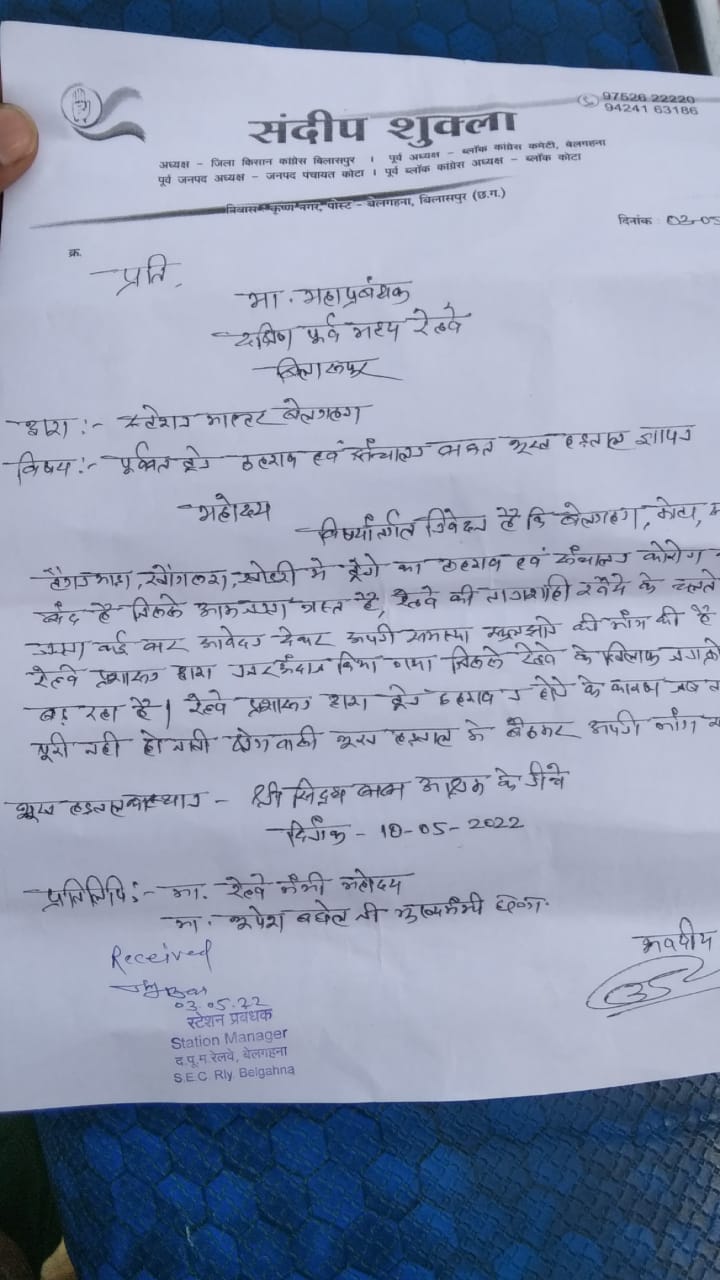 97526 22220
94241 63186
संदीप शुक्ला
अध्यक्ष - जिला किसान कांग्रेस बिलासपुर । पूर्व अध्यक्ष - ब्लॉक कांग्रेस कमेटी, बेलगहना
पूर्व जनपद अध्यक्ष - जनपद पंचायत कोटा । पूर्व ब्लॉक कांग्रेस अध्यक्ष - ब्लॉक कोटा
निवास - कृष्ण नगर, पोस्ट - बेलगहना, बिलासपुर (छ.ग.)
दिनांक : 03-05
क्र.
प्रति,
मा. महाप्रबंधक
दक्षिण पूर्व मध्य रेल्वे
बिलासपुर
द्वारा :- स्टेशन मास्टर बेलगहना
विषय :- पूर्ववत ट्रेन ठहराव एवं संचालन बाबत भूख हड़ताल ज्ञापन
महोदय
विषयांतर्गत निवेदन है कि बेलगहना, कोटा,
टेंगनमाड़ा, खोंगसरा, खोडरी मे ट्रेनो का ठहराव एवं संचालन कोरोना
बंद है जिससे आमजनता त्रस्त है, रेल्वे की तानाशाही रवैये के चलते
जनता कई बार आवेदन देकर अपनी समस्या सुलझाने की माँग की है
रेल्वे प्रशासन द्वारा नजरअंदाज किया गया जिससे रेल्वे के खिलाफ जनाक्रो
बढ़ रहा है। रेल्वे प्रशासन द्वारा ट्रेन ठहराव न होने के कारण जब त
पूरी नही हो जाती क्षेत्रवासी भूख हड़ताल मे बैठकर अपनी माँग
भूख हड़ताल का स्थान - श्री सिद्ध बाबा आश्रम के नीचे
दिनाँक - 10-05-2022
प्रतिलिपि :- मा. रेल्वे मंत्री महोदय
मा. भूपेश बघेल जी मुख्यमंत्री छ.ग.
भवदीय
Received
03.05.22
स्टेशन प्रबंधक
Station Manager
द.पू.म.रेलवे, बेलगहना
S.E.C. Rly. Belgahna